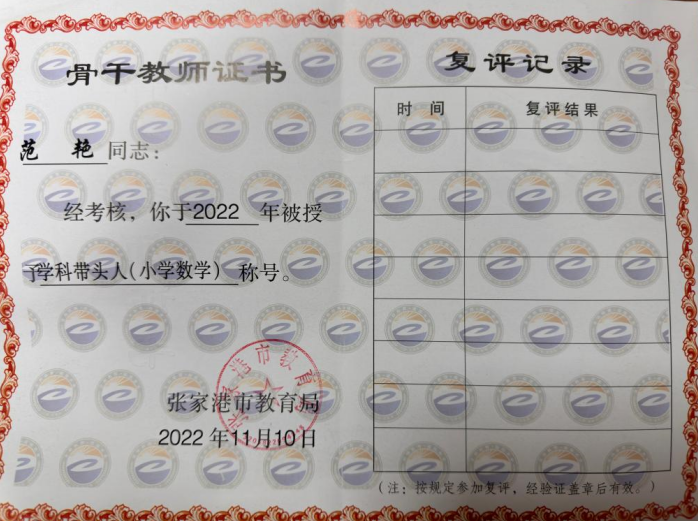 骨干教师证书
范 艳 同志：
经考核，你于2022 年被授
予学科带头人(小学数学) 称号。
张家港市教育局
2022年11月10日
复评记录
时 间 复评结果
(注：按规定参加复评，经验证盖章后有效。)